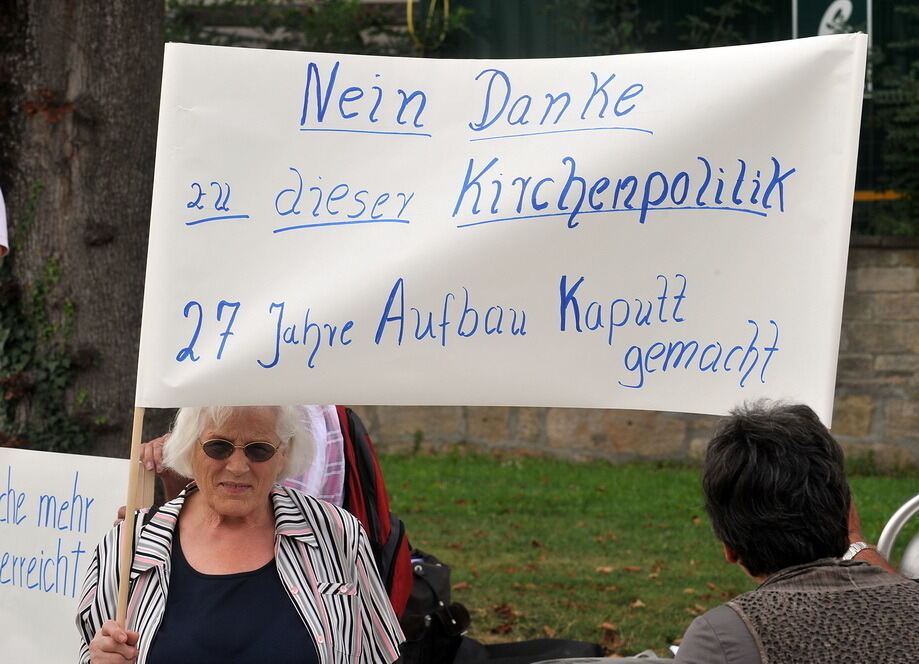 Nein Danke
zu dieser Kirchenpolilik
27 Jahre Aufbau Kaputt
gemacht
che mehr
erreicht